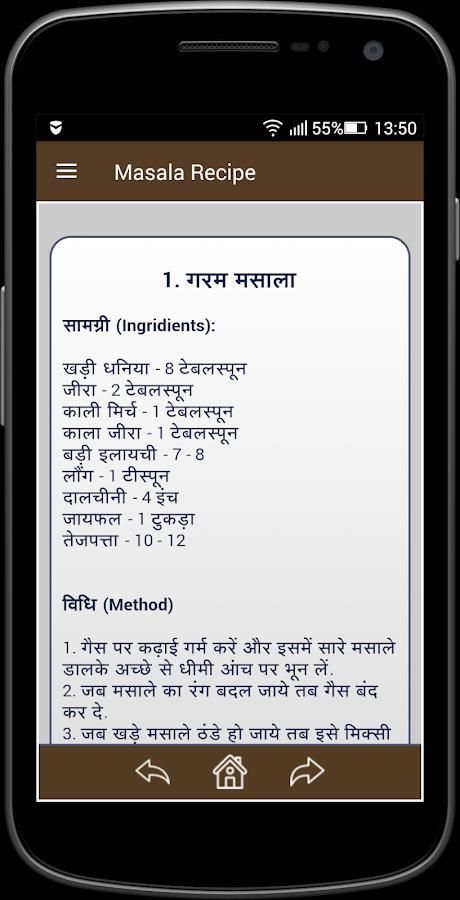 55% 13:50
Masala Recipe
1. गरम मसाला
सामग्री (Ingridients):
खड़ी धनिया - 8 टेबलस्पून
जीरा - 2 टेबलस्पून
काली मिर्च - 1 टेबलस्पून
काला जीरा - 1 टेबलस्पून
बड़ी इलायची - 7 - 8
लौंग - 1 टीस्पून
दालचीनी - 4 इंच
जायफल - 1 टुकड़ा
तेजपत्ता - 10 - 12
विधि (Method)
1. गैस पर कढ़ाई गर्म करें और इसमें सारे मसाले
डालके अच्छे से धीमी आंच पर भून लें.
2. जब मसाले का रंग बदल जाये तब गैस बंद
कर दे.
3. जब खड़े मसाले ठंडे हो जाये तब इसे मिक्सी